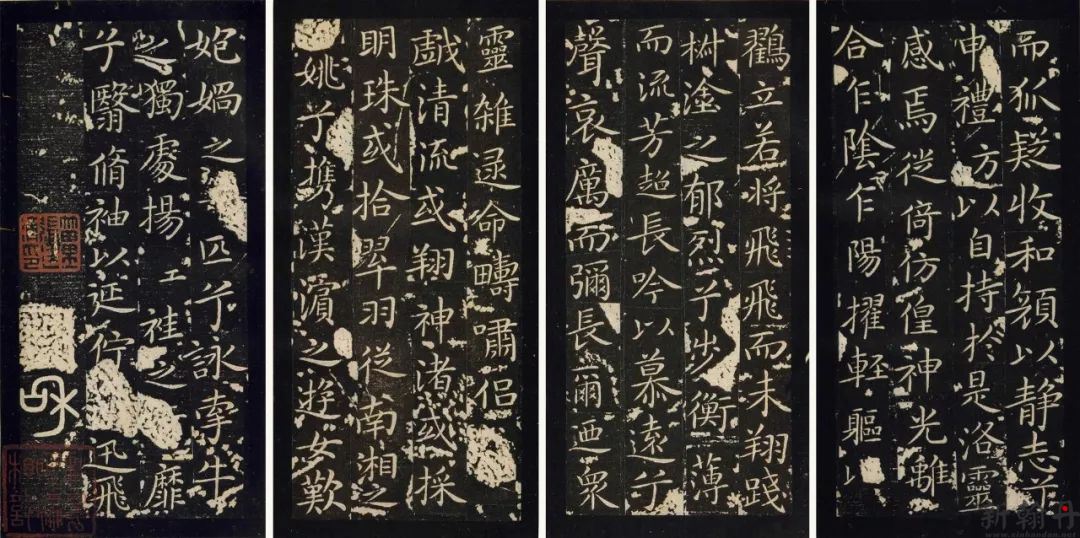 而狐疑收和顏以静志兮
申禮方以自持於是洛靈
感焉徙倚仿偟神光離
合乍陰乍陽擢輕軀以
鸛立若將飛飛而未翔踐
椒塗之郁烈兮步衡薄
而流芳超長吟以慕遠兮
聲哀厲而彌長爾迺衆
靈雜遝命疇嘯侣
戲清流或翔神渚或採
明珠或拾翠羽從南湘之
姚兮携漢濱之遊女歎
媧之匹兮詠牽牛
之獨處揚袿之靡
兮翳脩袖以延佇迅飛
新翰丹
www.xinhandan.net